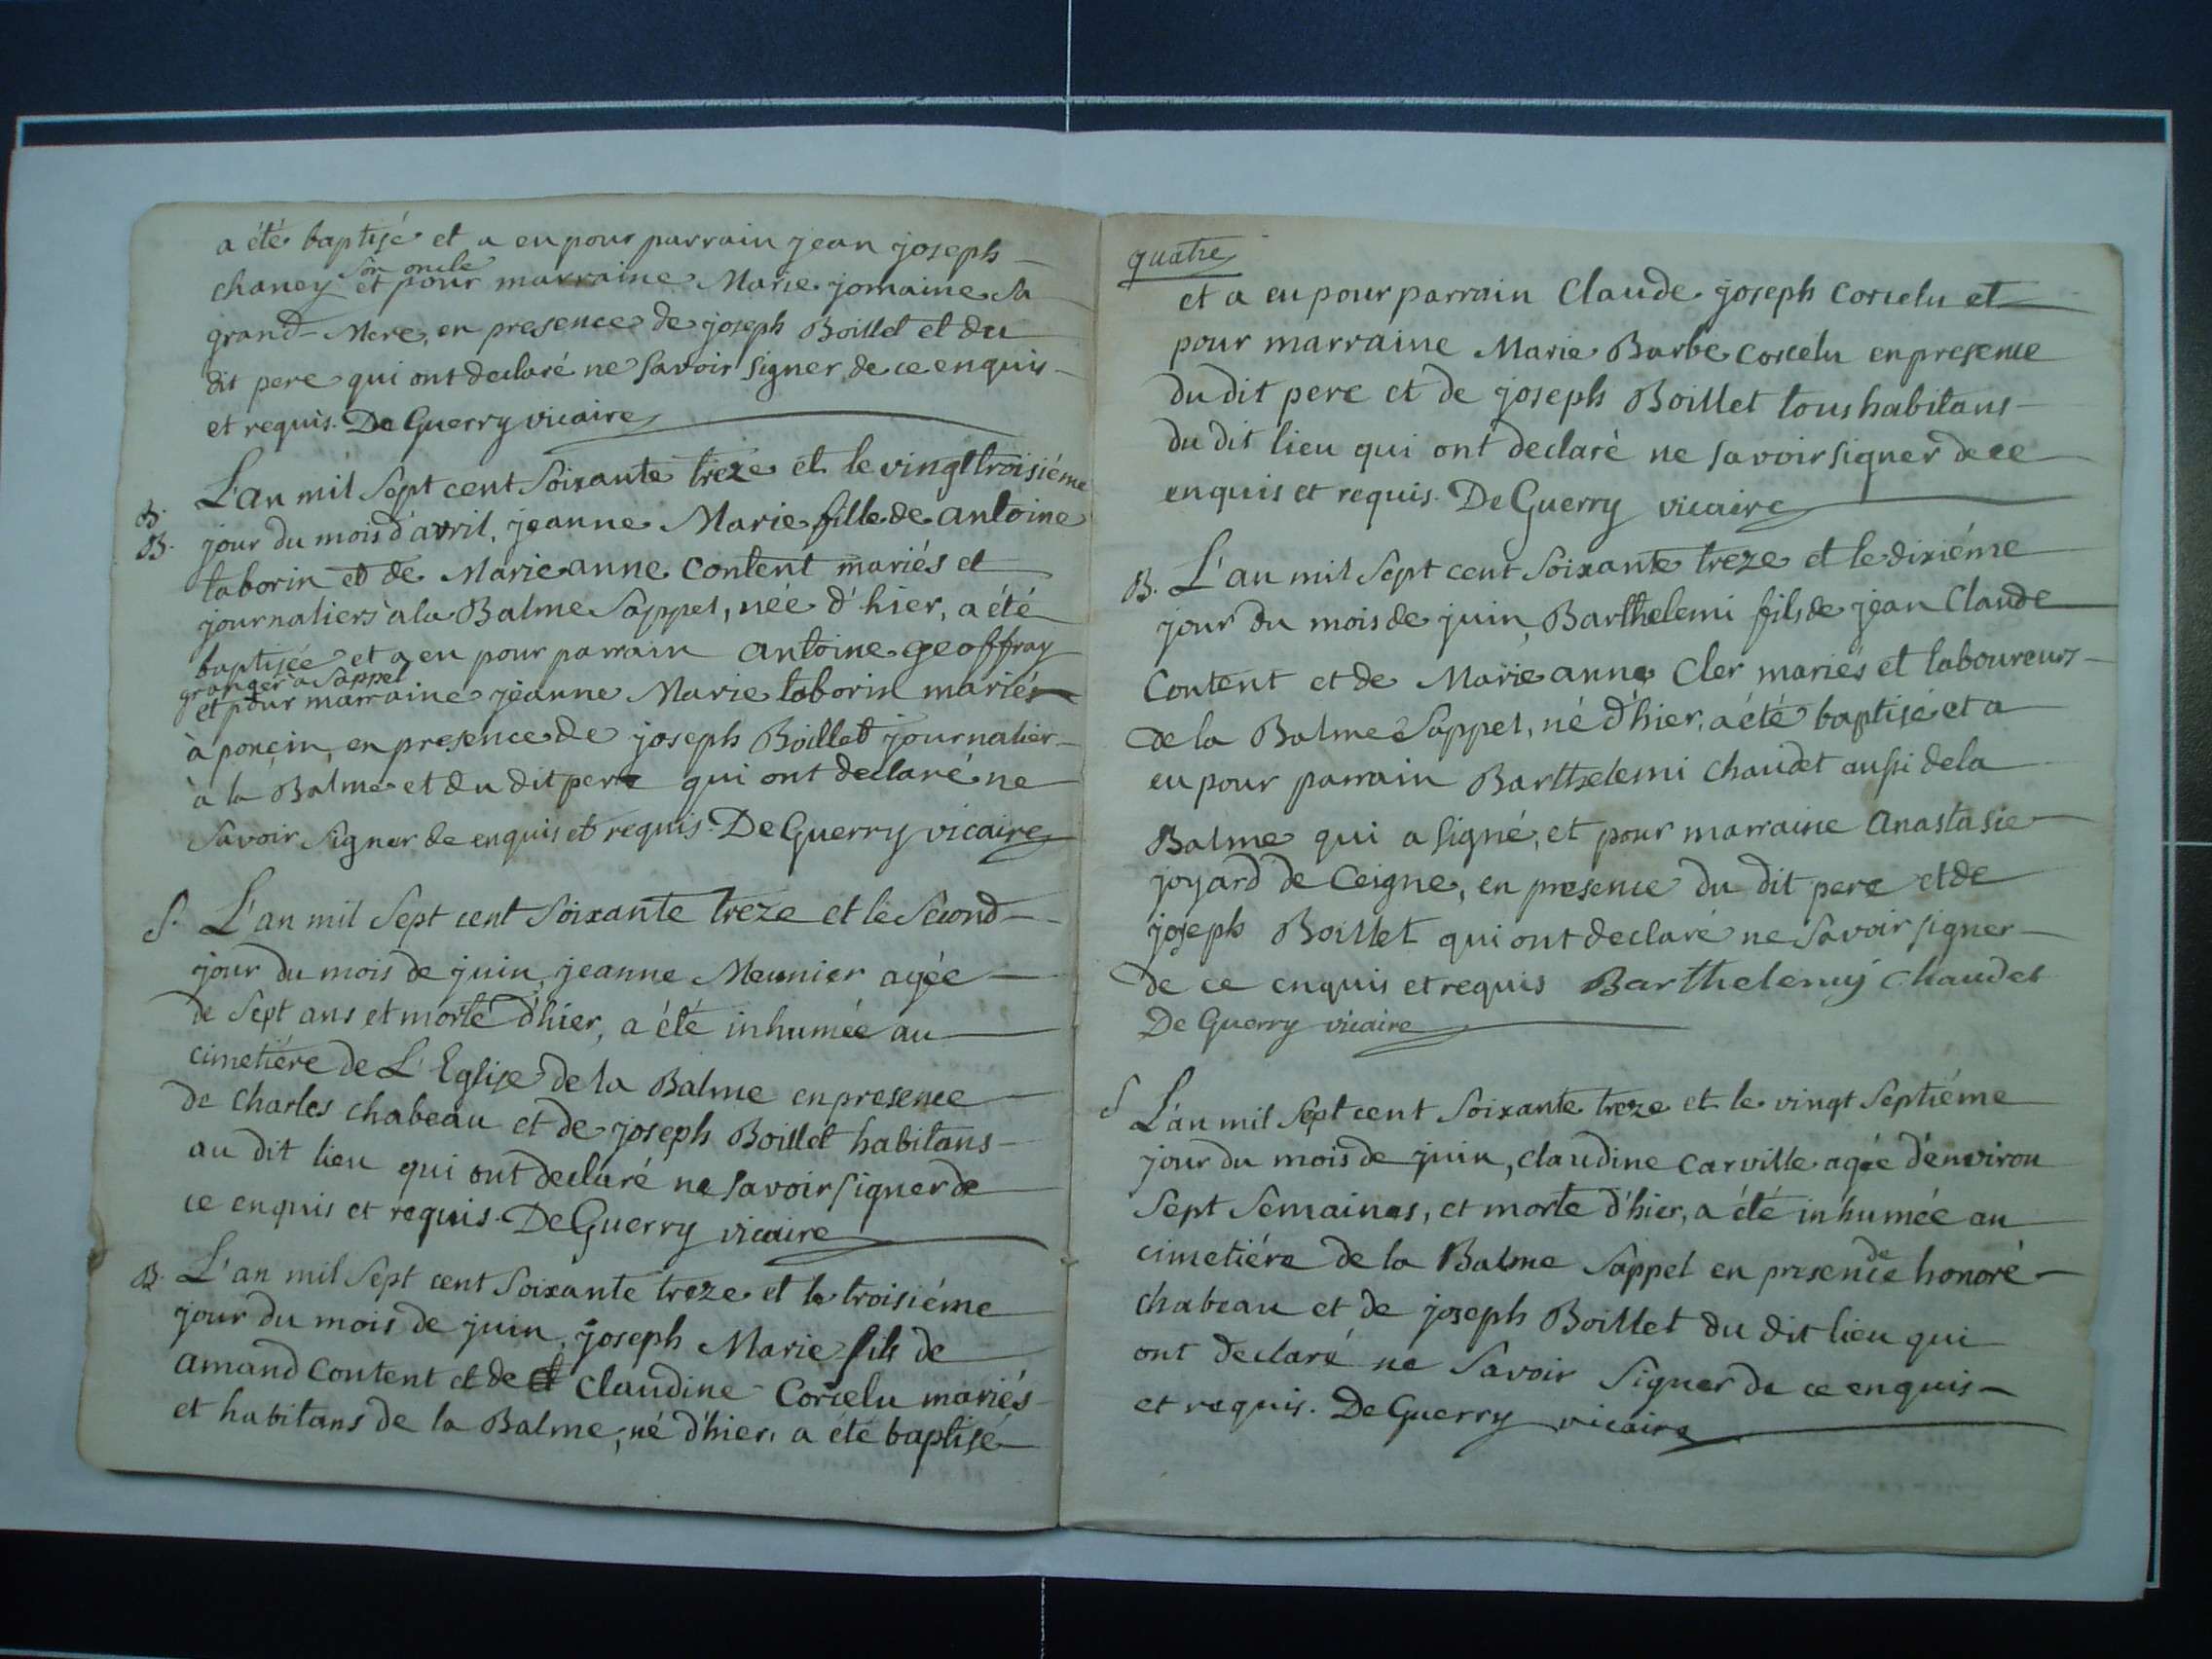 a été baptisé et a eu pour parrain jean joseph
chaney son oncle et pour marraine Marie jomaine sa
grand-Mere, en presence de joseph Boillet et du
dit pere qui ont declaré ne savoir signer, de ce enquis
et requis. De Guerry vicaire
L'an mil sept cent soixante treze et le vingt troisiéme
B.
B. jour du mois d'avril, jeanne Marie fille de antoine
taborin et de Marie anne Content mariés et
journaliers à la Balme Sappel, née d'hier, a été
baptisée et a eu pour parrain antoine geoffray
granger à Sappel
et pour marraine jeanne Marie taborin mariés
à poncin, en presence de joseph Boillet journalier
à la Balme et du dit pere qui ont declaré ne
savoir signer de enquis et requis. De Guerry vicaire
S. L'an mil sept cent soixante treze et le second
jour du mois de juin, jeanne Meunier agée
de sept ans et morte d'hier, a été inhumée au
cimetiére de L'Eglise de la Balme en presence
de Charles chabeau et de joseph Boillet habitans
au dit lieu qui ont declaré ne savoir signer de
ce enquis et requis. De Guerry vicaire
B. L'an mil sept cent soixante treze et le troisiéme
jour du mois de juin, joseph Marie fils de
amand Content et de Claudine Corcelu mariés
et habitans de la Balme, né d'hier, a été baptisé
quatre
et a eu pour parrain Claude joseph Corcelu et
pour marraine Marie Barbe Corcelu en presence
du dit pere et de joseph Boillet tous habitans
du dit lieu qui ont declaré ne savoir signer de ce
enquis et requis. De Guerry vicaire
B. L'an mil sept cent soixante treze et le dixiéme
jour du mois de juin, Barthelemi fils de jean Claude
Content et de Marie anne Cler mariés et laboureurs
de la Balme Sappel, né d'hier, a été baptisé et a
eu pour parrain Barthelemi chaudet aussi de la
Balme qui a signé, et pour marraine Anastasie
joyard de Ceigne, en presence du dit pere et de
joseph Boillet qui ont declaré ne savoir signer
de ce enquis et requis Barthelemy Chaudet
De Guerry vicaire
S L'an mil sept cent soixante treze et le vingt septiéme
jour du mois de juin, claudine Carville agée d'environ
sept semaines, et morte d'hier, a été inhumée au
cimetiére de la Balme Sappel en presence de honoré
chabeau et de joseph Boillet du dit lieu qui
ont declaré ne savoir signer de ce enquis
et requis. De Guerry vicaire